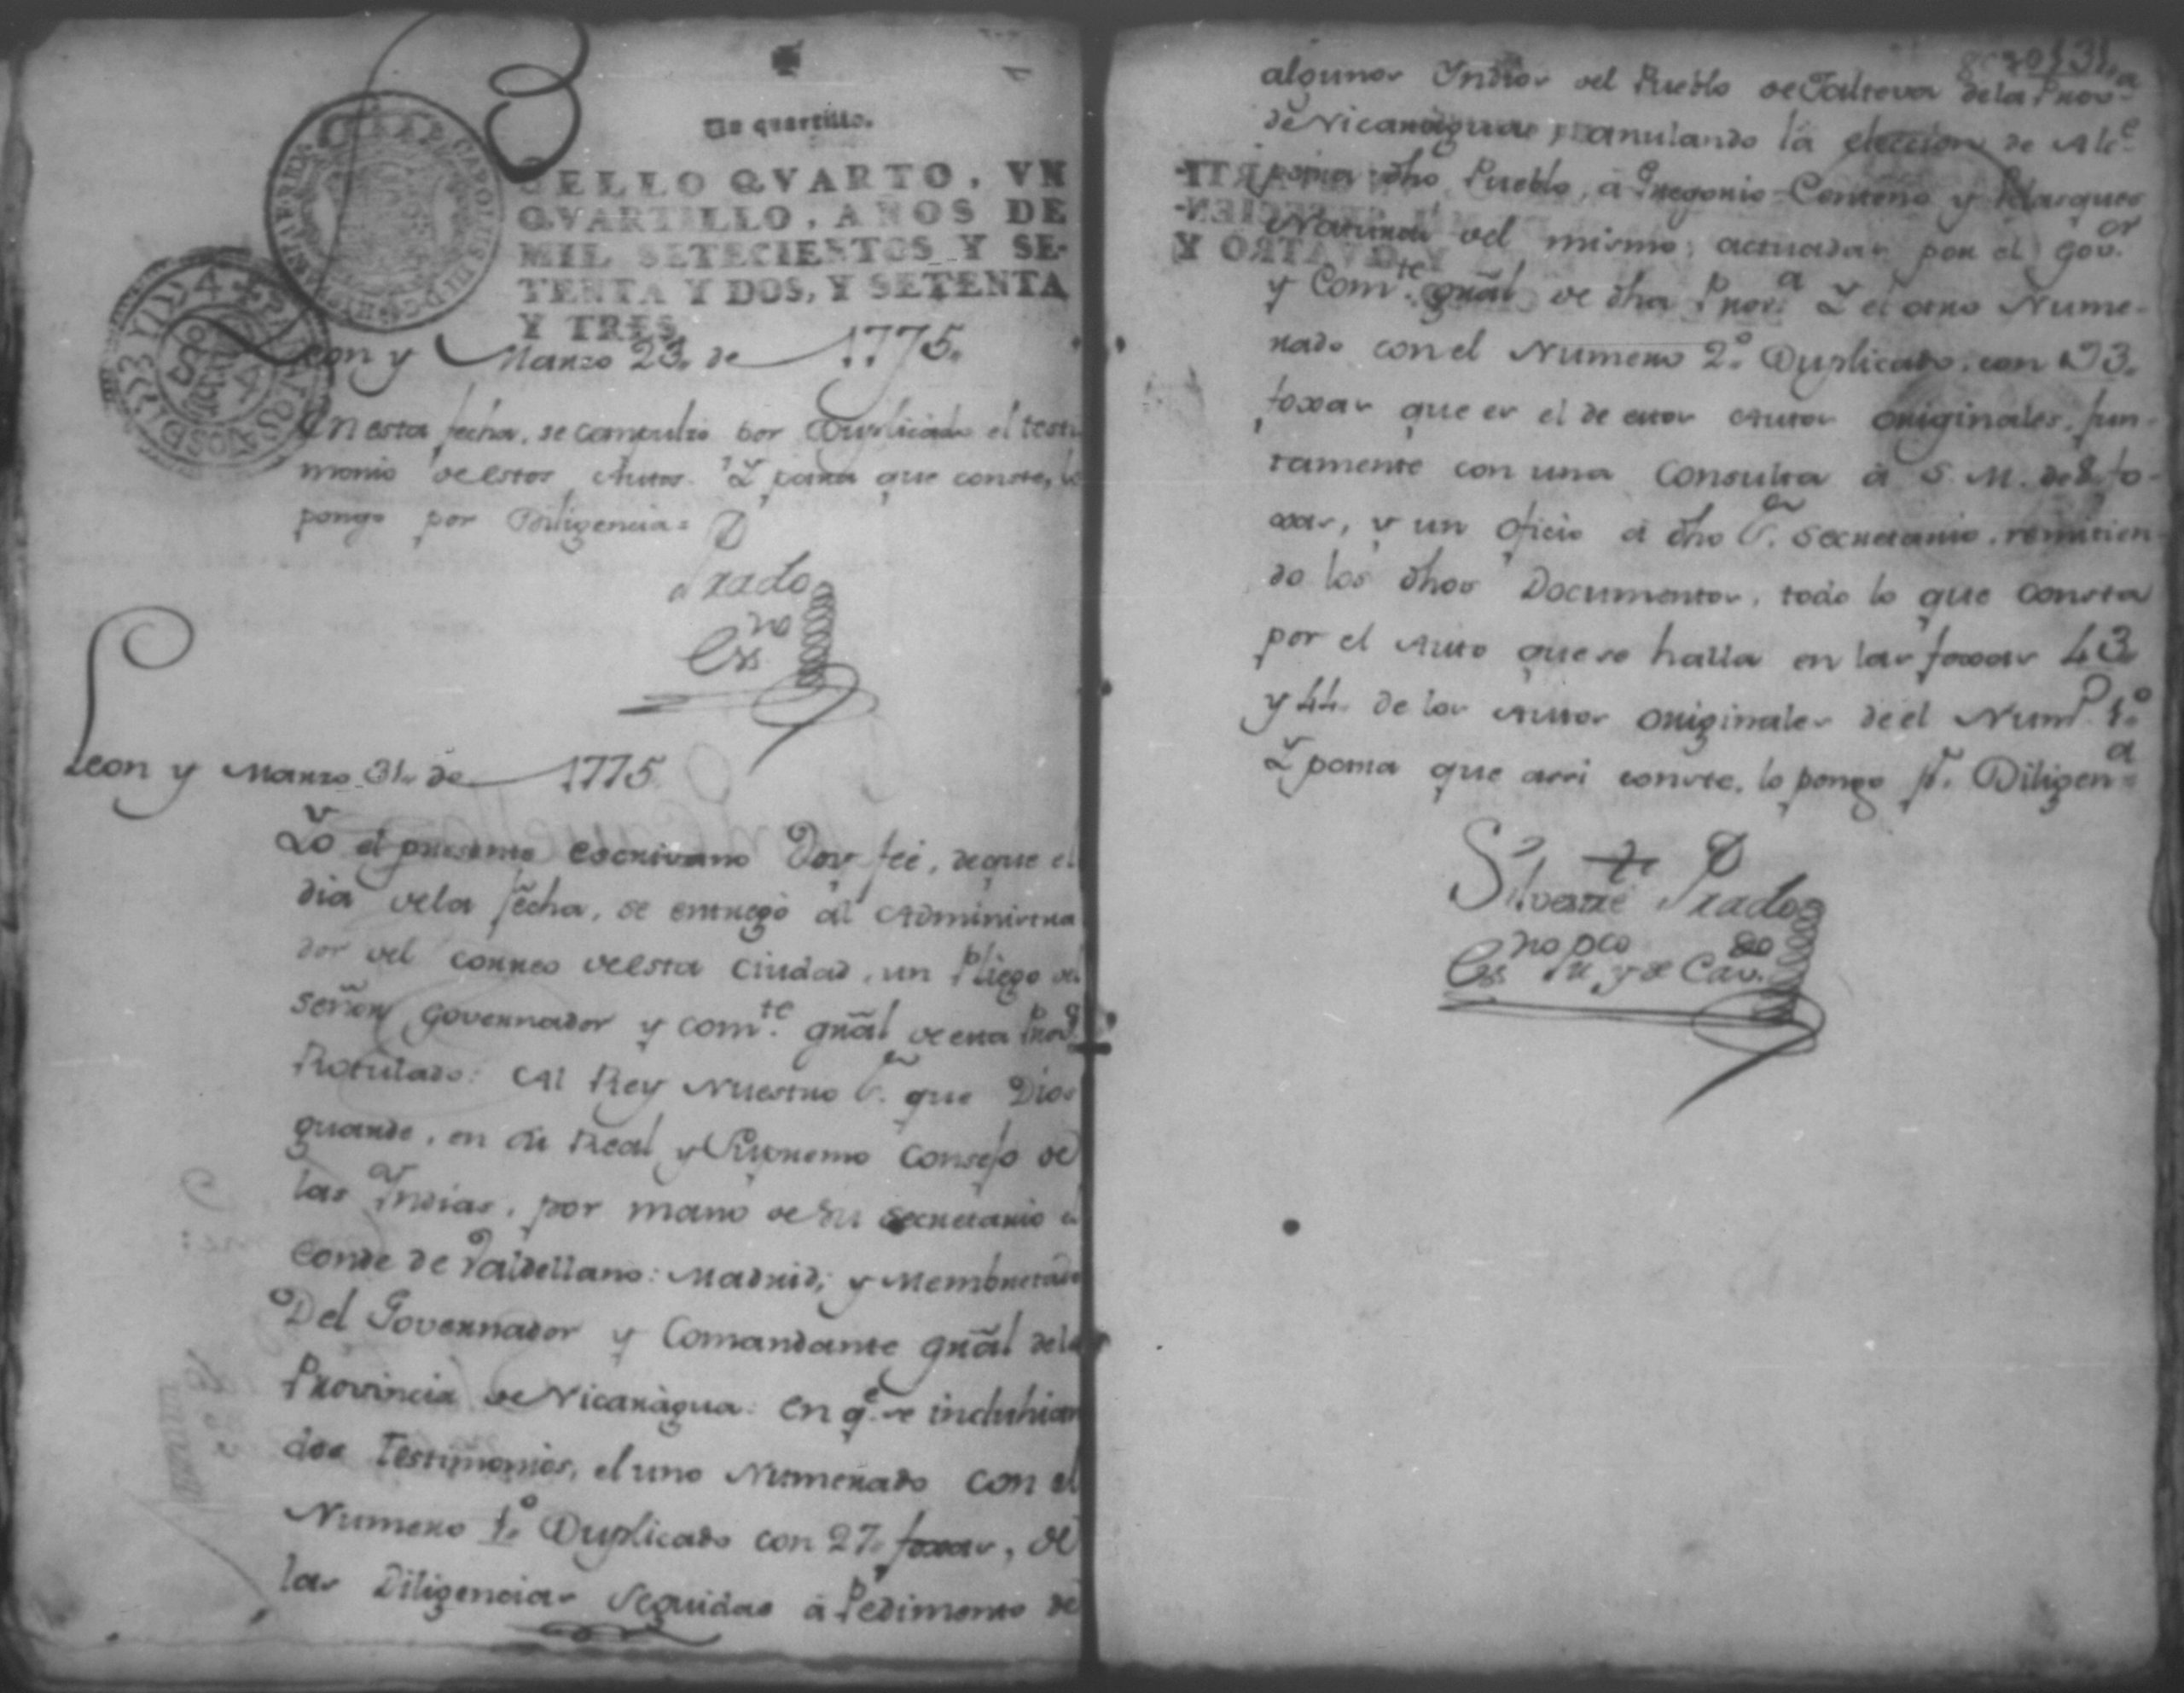 Un quartillo.
SELLO QVARTO, VN
QVARTILLO, AÑOS DE
MIL SETECIENTOS Y SE-
TENTA Y DOS, Y SETENTA
Y TRES.
Leon y Marzo 23. de 1775.
En esta fecha, se compulsó por Duplicado el testi
monio de estos Autos. Y para que conste, lo
pongo por Diligencia=
Prado
Essno
Leon y Marzo 31. de 1775
Yo el presente escrivano Doy feé, de que el
dia de la fécha, se entregó al Administra
dor del correo de esta Ciudad, un Pliego del
señor Governador y Comte. gñal de esta Prova.
Rotulado: Al Rey Nuestro Sr. que Dios
guarde, en su Real y Supremo Consejo de
las Yndias, por mano de su secretario el
Conde de Valdellano: Madrid; y Membretado
Del Governador y Comandante gñal de la
Provincia de Nicaragua: en qe. se incluhian
dos Testimonios, el uno Numerado con el
Numero 1.º Duplicado con 27. foxas, de
las Diligencias Seguidas á Pedimento de
131.
algunos Yndios del Pueblo de Jalteva de la Prova.
de Nicaragua, anulando la eleccion de Alce.
para dho Pueblo, á Gregorio Centeno y Blasques
Natural del mismo; actuadas por el Govor.
y Comte. gñal de dha Prova. Y el otro Nume-
rado con el Numero 2.º Duplicado, con 93.
foxas que es el de estos Autos originales, jun-
tamente con una Consulta á S. M. de 8. fo-
xas, y un Oficio á dho Sr. Secretario, remitien-
do los dhos Documentos, todo lo que consta
por el Auto que se halla en las foxas 43
y 44. de los Autos originales de el Numo. 1.º
Y para que assi conste, lo pongo pr. Diligena=
Silvestre Prado
Essno pco pu. y de Cavdo.